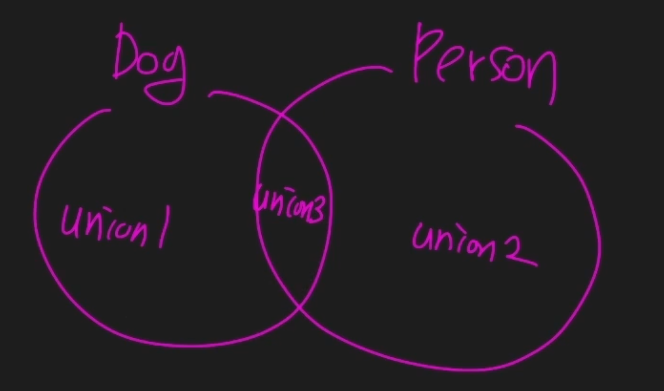 Dog
Person
union1
union3
union2